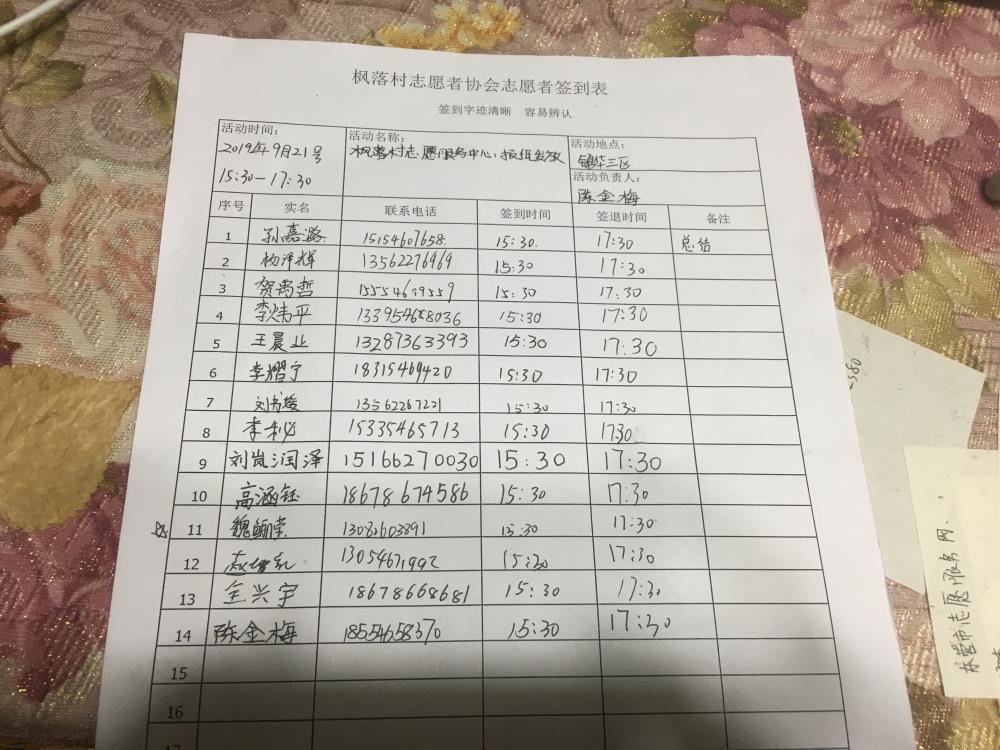 枫落村志愿者协会志愿者签到表
签到字迹清晰 容易辨认
活动时间： 活动名称： 活动地点：
2019年9月21号 枫落村志愿服务中心，报纸发放 锦华三区
15:30-17:30 活动负责人：
陈金梅
序号 实名 联系电话 签到时间 签退时间 备注
1 孙嘉潞 15154607658 15:30 17:30 总结
2 杨洋辉 13562276969 15:30 17:30
3 贺禹哲 15:30 17:30
4 李炜平 13395468036 15:30 17:30
5 王晨业 13287363393 15:30 17:30
6 李熠宁 18315469420 15:30 17:30
7 13562267221 15:30 17:30
8 李秘 15335465713 15:30 17:30
9 刘岚润泽 15166270030 15:30 17:30
10 高涵钰 18678674586 15:30 17:30
11 13081603891 15:30 17:30
12 13054671992 15:30 17:30
13 全兴宇 18678668681 15:30 17:30
14 陈金梅 18554658370 15:30 17:30
15
16
17
2580
东营市志愿服务网.